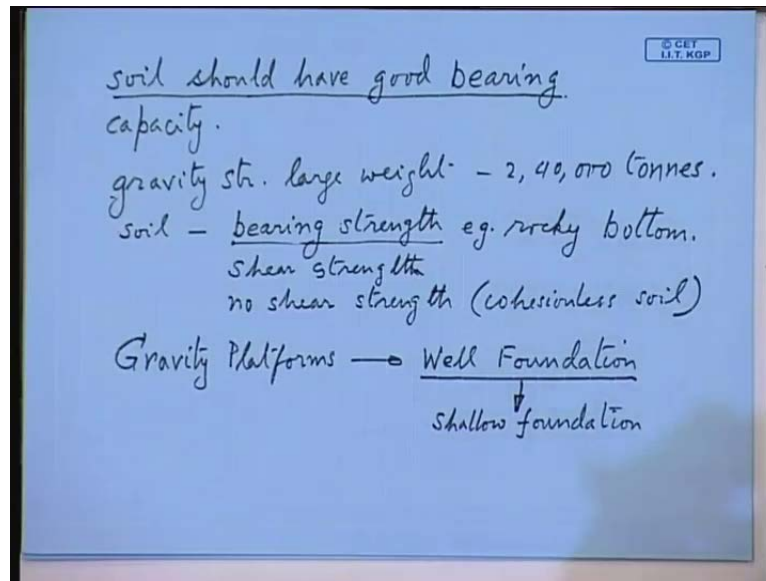 © CET
I.I.T. KGP
soil should have good bearing
capacity.
gravity str. large weight - 2,40,000 tonnes.
soil - bearing strength eg. rocky bottom.
shear strength
no shear strength (cohesionless soil)
Gravity Platforms → Well Foundation
shallow foundation